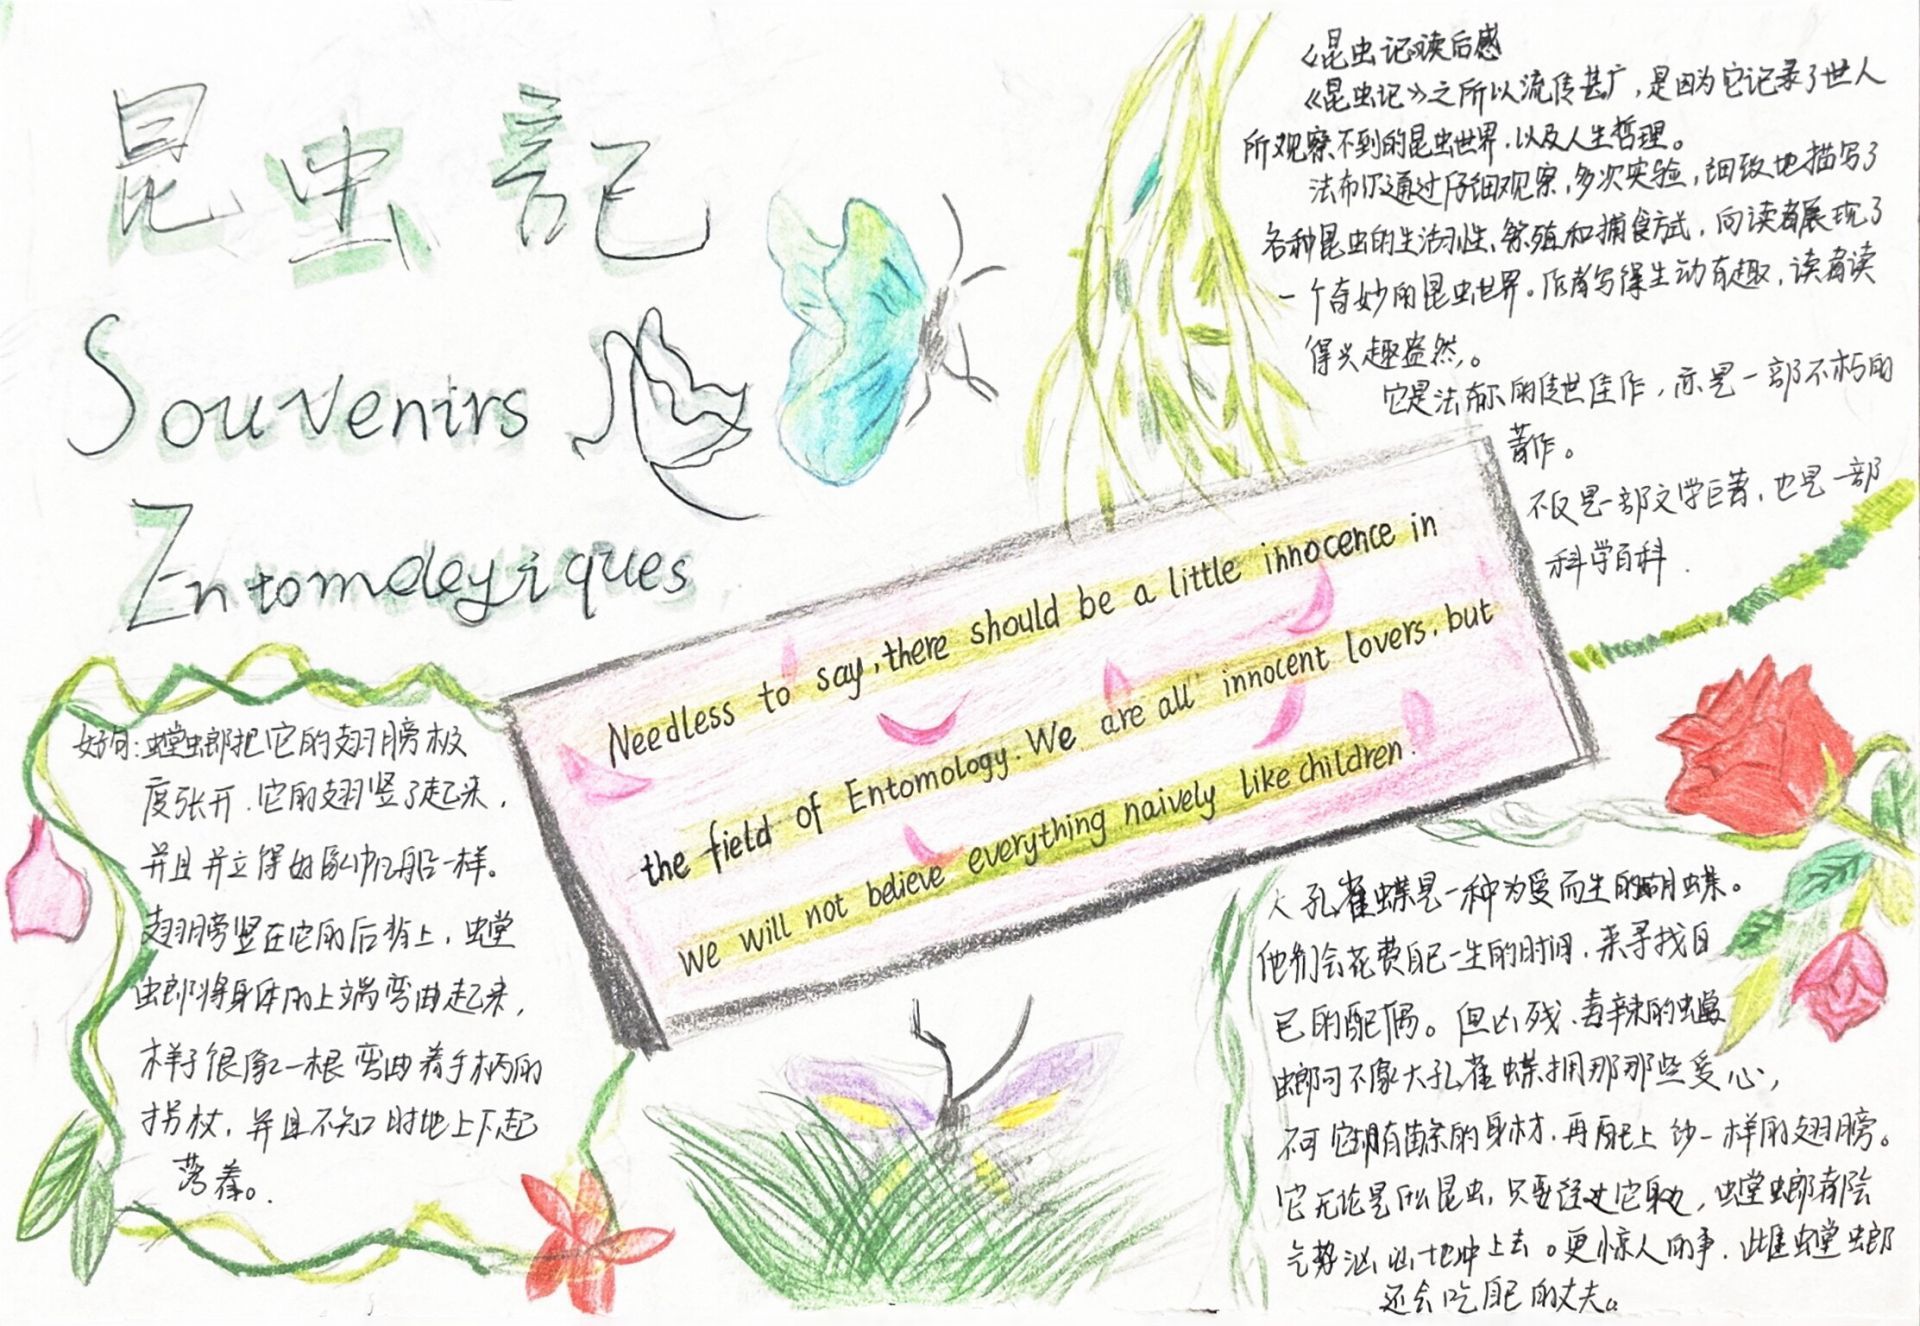 昆虫記
Souvenirs
Entomoleyiques
《昆虫记》读后感
《昆虫记》之所以流传甚广，是因为它记录了世人
所观察不到的昆虫世界，以及人生哲理。
法布尔通过仔细观察，多次实验，细致地描写了
各种昆虫的生活习性、繁殖和捕食方式，向读者展现了
一个奇妙的昆虫世界。作者写得生动有趣，读者读
得兴趣盎然。
它是法布尔的传世佳作，亦是一部不朽的
著作。
不仅是一部文学巨著，也是一部
科学百科.
Needless to say, there should be a little innocence in
the field of Entomology. We are all innocent lovers, but
we will not believe everything naively like children.
好句：螳螂把它的翅膀极
度张开，它的翅竖了起来，
并且并立得好像帆船一样。
翅膀竖在它的后背上，螳
螂将身体的上端弯曲起来，
样子很像一根弯曲着手柄的
拐杖，并且不知时地上下起
落着。
大孔雀蝶是一种为爱而生的蝴蝶。
他们会花费自己一生的时间，来寻找自
己的配偶。但凶残、毒辣的螳
螂可不像大孔雀蝶拥那那些爱心，
不可它拥有苗条的身材，再配上纱一样的翅膀。
它无论是什么昆虫，只要经过它身边，螳螂都会
气势汹汹地冲上去。更惊人的事，雌螳螂
还会吃自己的丈夫。